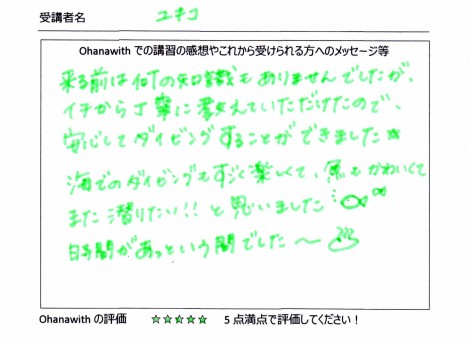 受講者名 ユキコ
Ohanawith での講習の感想やこれから受けられる方へのメッセージ等
来る前は何の知識もありませんでしたが、
イチから丁寧に教えていただけたので、
安心してダイビングすることができました☆
海でのダイビングもすごく楽しくて、魚もかわいくて
また潜りたい!!と思いました
時間があっという間でした〜
Ohanawith の評価 ☆☆☆☆☆ 5 点満点で評価してください！